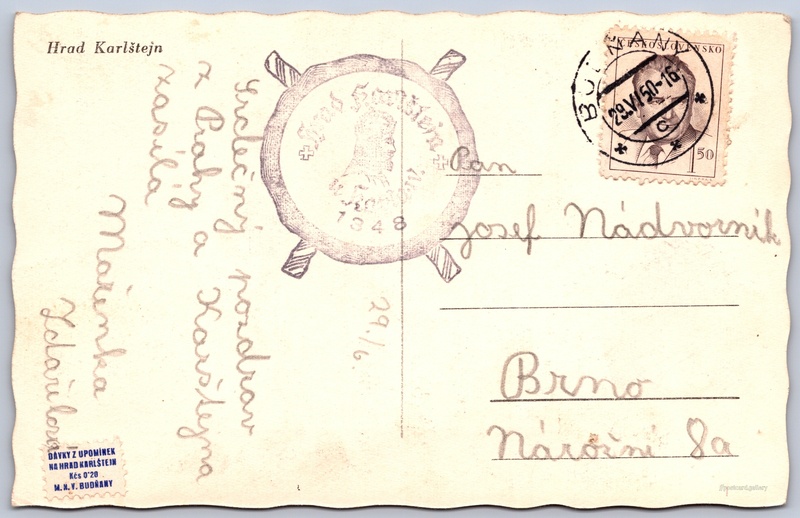 Hrad Karlštejn
Srdečný pozdrav
z Prahy a Karlštejna
zasílá
Mařenka
Zdařilová
29/6.
Hrad Karlštejn
1348
ČESKOSLOVENSKO
1 50
BUDŇANY
29.VI.50-16
c
Pan
Josef Nádvorník
Brno
Nárožní 8a
DÁVKY Z UPOMÍNEK
NA HRAD KARLŠTEJN
Kčs 0'20
M. N. V. BUDŇANY